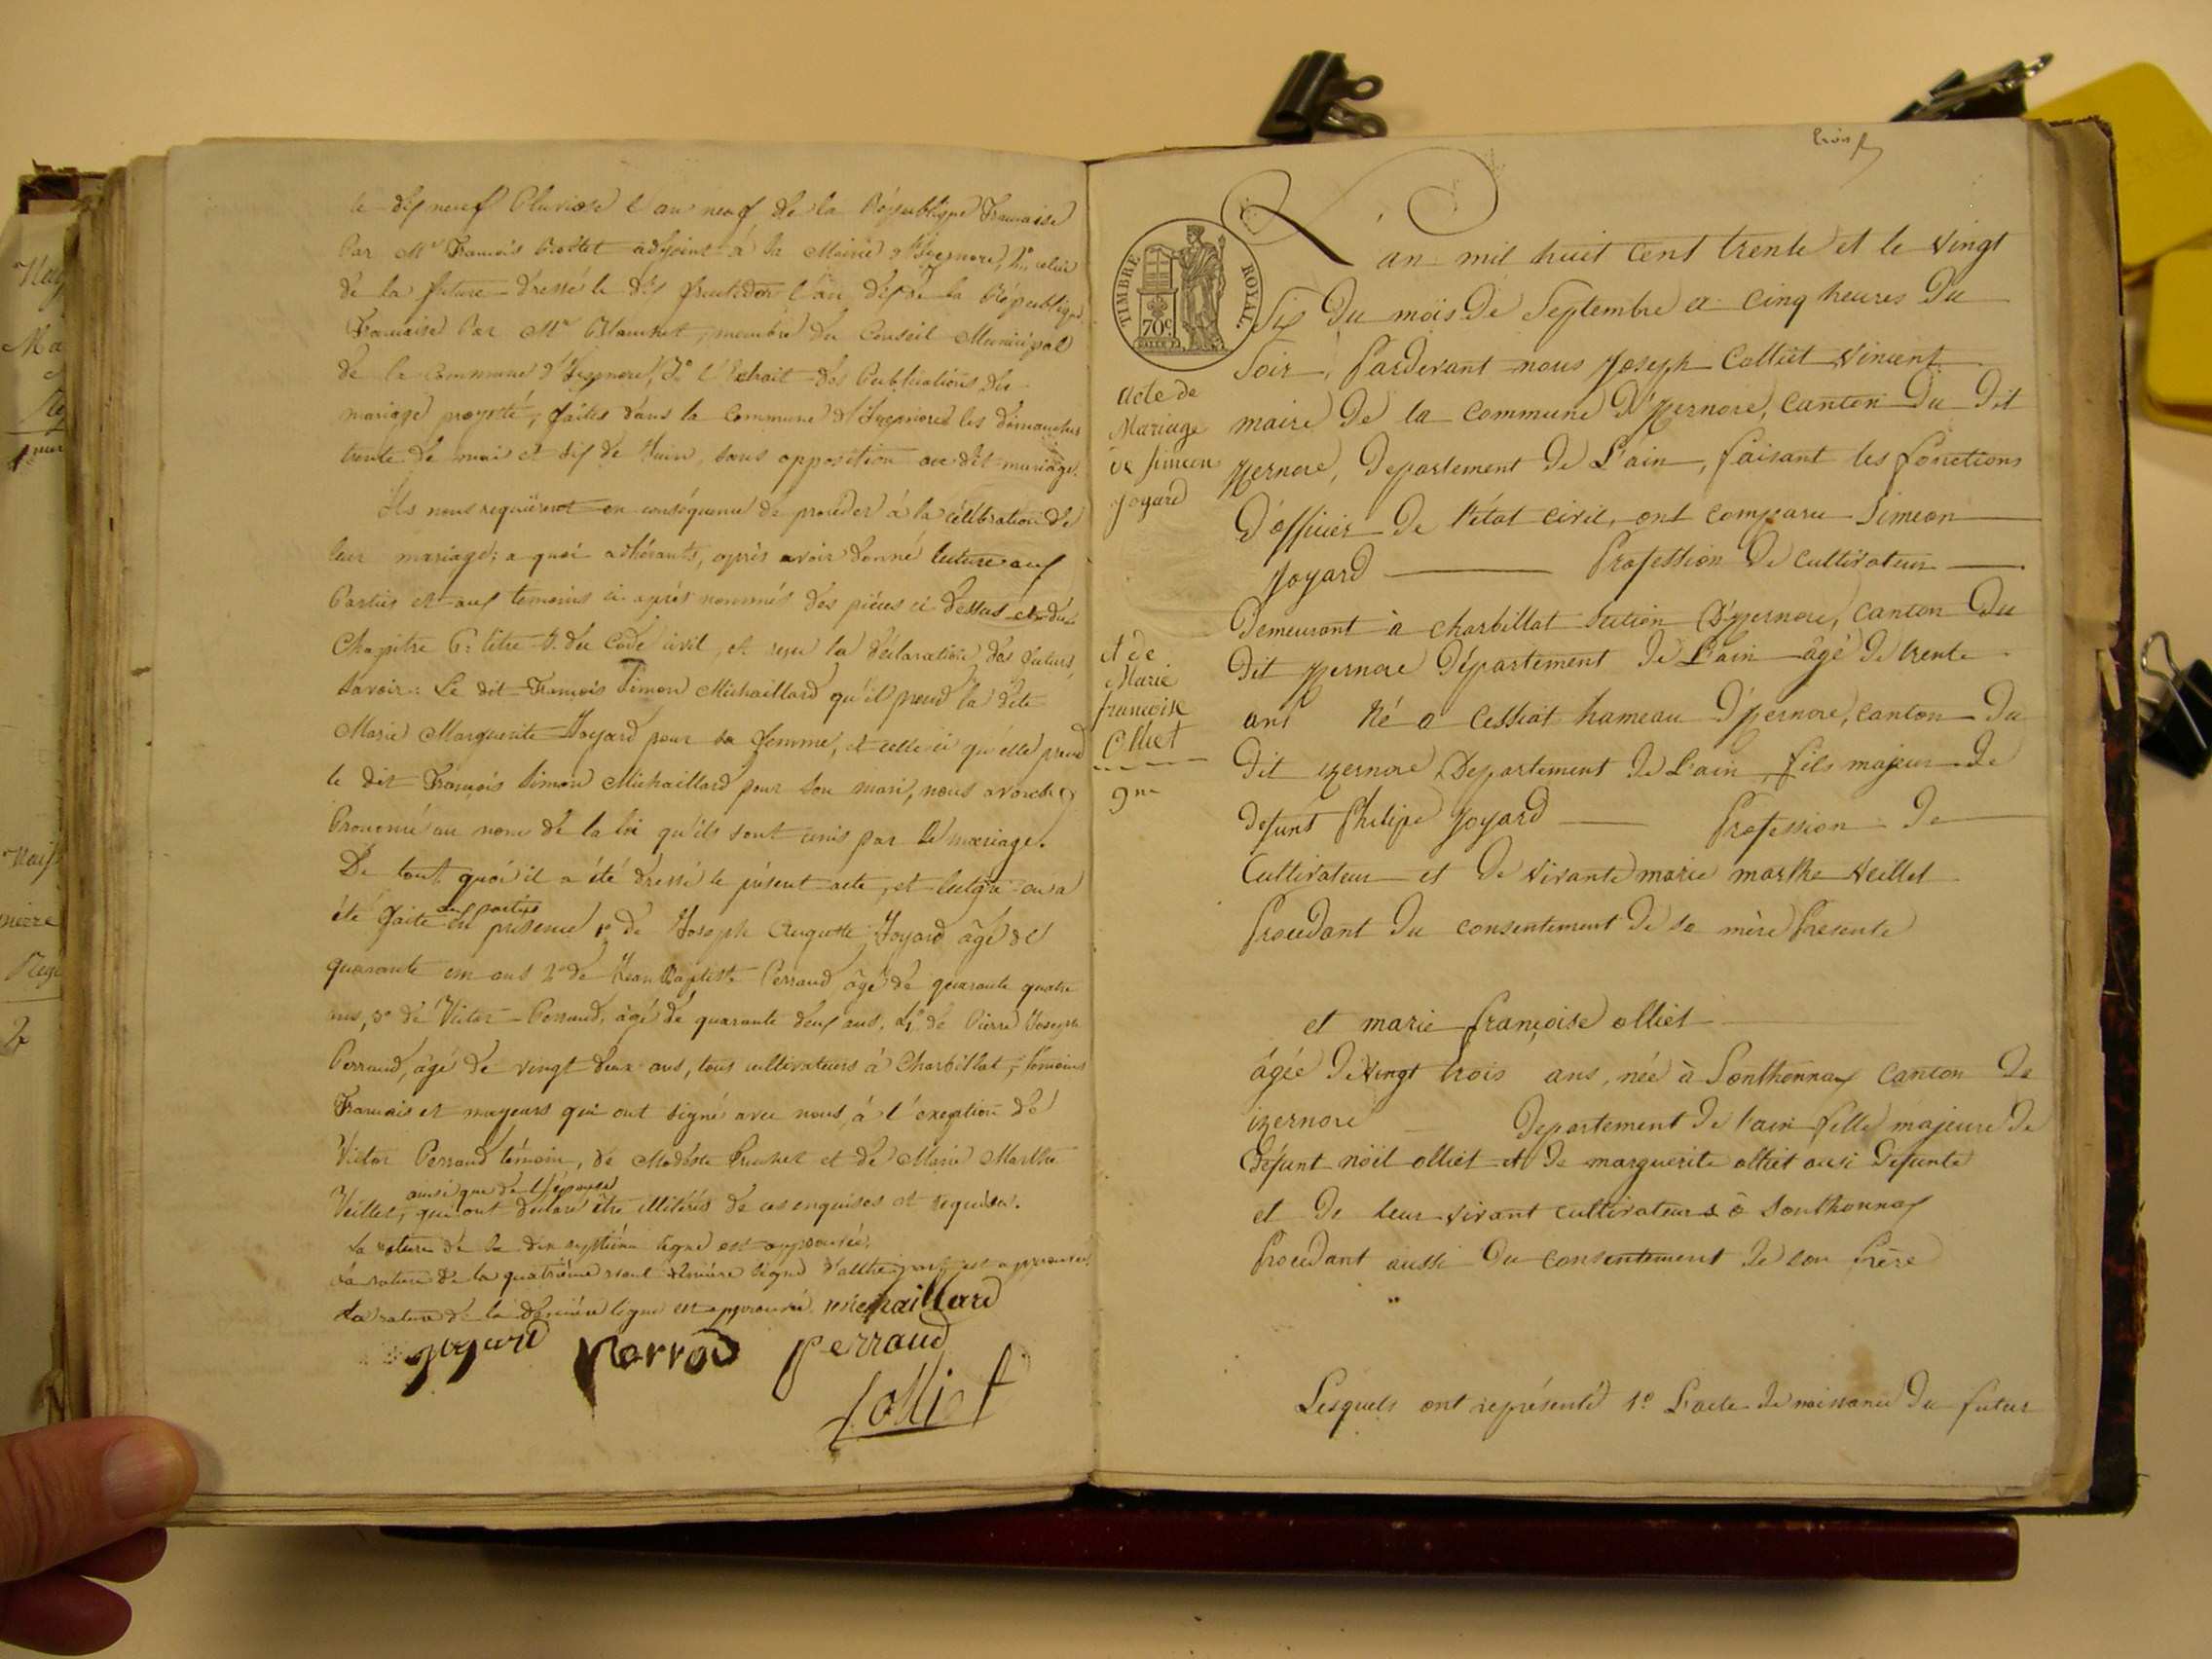 le dix neuf Pluviose l'an neuf de la République Francaise
Par Mr François adjoint à la Mairie d'Izernore, 2º celui
de la future dressé le dix fructidor l'an dix de la République
Francaise Par Mr Blanchet, membre du Conseil Municipal
de la Commune d'Izernore, 3º l'Extrait des Publications du
mariage projetté, faites dans la Commune d'Izernore les dimanches
trente de mai et six de Juin, sans opposition au dit mariage.
Ils nous requièrent en conséquence de procéder à la célébration de
leur mariage; a quoi adhérants, après avoir donné lecture aux
Parties et aux temoins ci-après nommés des pièces ci dessus et du
Chapitre 6: titre 5. du Code civil, et reçu la déclaration des futurs,
Savoir: Le dit François Simon Michaillard qu'il prend la dite
Marie Marguerite Joyard pour sa femme, et celle ci qu'elle prend
le dit François Simon Michaillard pour son mari, nous avons
Prononcé au nom de la loi qu'ils sont unis par le mariage.
De tout quoi il a été dressé le présent acte, et lecture en a
aux parties
été faite en présence 1º de Joseph Auguste Joyard âgé de
quarante un ans 2º de Jean Baptiste Perraud âgé de quarante quatre
ans, 3º de Victor Perraud, âgé de quarante deux ans, 4º de Pierre Joseph
Perraud, âgé de vingt deux ans, tous cultivateurs à Charbillat, témoins
Francais et majeurs qui ont signé avec nous, à l'exeption de
Victor Perraud témoin, de Modeste et de Marie Marthe
ainsi que de l'épouse
Veillet, qui ont déclaré être illitérés de ces enquises et requises.
La rature de la dix septième ligne est approuvée.
La rature de la quatrième avant dernière ligne est approuvée
La rature de la dernière ligne est approuvée michaillard
joyard perraud
Colliet
trois
TIMBRE ROYAL
70 c
Acte de
Mariage
de Simeon
Joyard
et de
Marie
francoise
Olliet
9me
L'an mil huit cent trente et le vingt
Six du mois de Septembre a cinq heures du
Soir, Pardevant nous Joseph Colliet Vincent
maire de la commune d'Izernore, canton du dit
Izernore, Departement de L'ain, faisant les fonctions
d'officier de l'état civil, ont comparu Simeon
Joyard Profession de cultivateur
demeurant à charbillat Section d'Izernore, canton du
dit Izernore Département de L'ain âgé de trente
ans Né a Cessiat hameau d'Izernore, canton du
dit izernore Département de L'ain fils majeur de
defunt Philipe Joyard Profession de
Cultivateur et de vivante marie marthe veillet
Procédant du consentement de sa mère Présente
et marie françoise olliet
âgée de vingt trois ans, née à Sonthonnax Canton de
izernore Departement de l'ain fille majeure de
défunt noël olliet et de marguerite olliet ausi defunte
et de leur vivant cultivateurs à Sonthonnax
Procédant aussi du consentement de son frère
Lesquels ont représenté 1º L'acte de naissance du futur